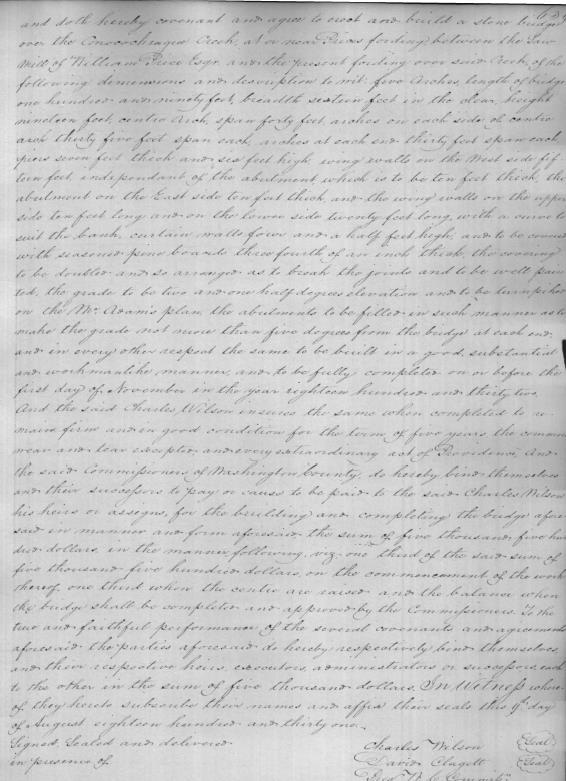 and doth hereby covenant and agree to erect and build a stone bridge
over the Conococheague Creek, at or near Prices fording between the Saw
Mill of William Price Esqr. and the present fording over said Creek, of the
following dimensions and description to wit: five Arches, length of bridge
one hundred and ninety feet, breadth sixteen feet in the clear, height
nineteen feet, centre Arch, span forty feet, arches on each side of centre
arch thirty five feet span each, arches at each end thirty feet span each,
piers seven feet thick and six feet high, wing walls on the West side fif-
teen feet, independant of the abutment which is to be ten feet thick, the
abutment on the East side ten feet thick, and the wing walls on the upper
side ten feet long and on the lower side twenty feet long, with a curve to
suit the bank, curtain walls four and a half feet high, and to be covered
with seasoned pine boards three fourth of an inch thick, the covering
to be doubled and so arranged as to break the joints and to be well pain-
ted, the grade to be two and one half degrees elevation and to be turnpiked
on the Mc. Adams plan, the abutments to be filled in such manner as to
make the grade not more than five degrees from the bridge at each end,
and in every other respect the same to be built in a good, substantial
and workmanlike manner, and to be fully completed on or before the
first day of November in the year eighteen hundred and thirty two.
And the said Charles Wilson insures the same when completed to re-
main firm and in good condition for the term of five years the common
wear and tear excepted and every extraordinary act of Providence, And
the said Commissioners of Washington County, do hereby bind themselves
and their successors to pay or cause to be paid to the said Charles Wilson
his heirs or assigns, for the building and completing the bridge afore-
said in manner and form aforesaid the sum of five thousand five hun
dred dollars, in the manner following, viz: one third of the said sum of
five thousand five hundred dollars, on the commencement of the work
thereof, one third when the centre are raised and the balance when
the bridge shall be completed and approved by the Commissioners. To the
true and faithful performance of the several covenants and agreements
aforesaid the parties aforesaid do hereby respectively bind themselves
and their respective heirs, executors, administrators or successors, each
to the other in the sum of five thousand dollars. In Witness where-
of they hereto subscribe their names and affix their seals this 9th day
of August eighteen hundred and thirty one.
Signed, Sealed and delivered
in presence of
Charles Wilson (Seal)
David Clagett (Seal)